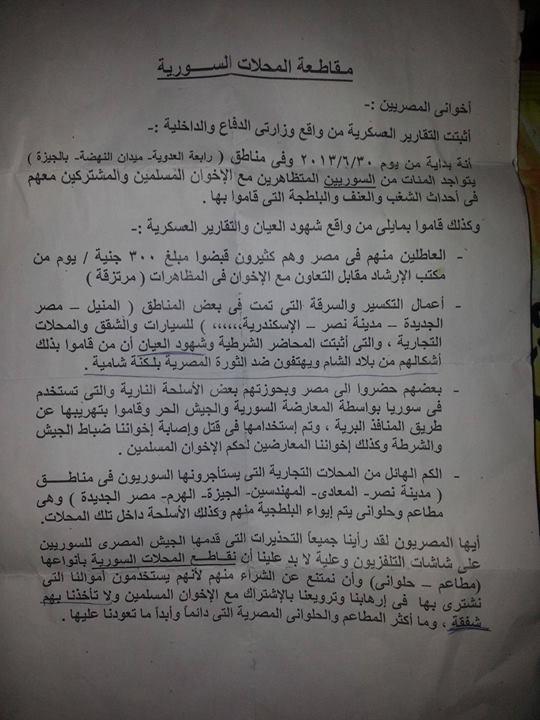 مقاطعة المحلات الســـورية
أخوانى المصريين :-
أثبتت التقارير العسكرية من واقع وزارتى الدفاع والداخلية :-
أنة بداية من يوم ٢٠١٣/٦/٣٠ وفى مناطق ( رابعة العدوية- ميدان النهضة- بالجيزة )
يتواجد المئات من السوريين المتظاهرين مع الإخوان المسلمين والمشتركين معهم
فى أحداث الشغب والعنف والبلطجة التى قاموا بها .
وكذلك قاموا بمايلى من واقع شهود العيان والتقارير العسكرية :-
- العاطلين منهم فى مصر وهم كثيرون قبضوا مبلغ ٣٠٠ جنية / يوم من
مكتب الإرشاد مقابل التعاون مع الإخوان فى المظاهرات ( مرتزقة )
- أعمال التكسير والسرقة التى تمت فى بعض المناطق ( المنيل – مصر
الجديدة – مدينة نصر – الإسكندرية،،،،،، ) للسيارات والشقق والمحلات
التجارية ، والتى أثبتت المحاضر الشرطية وشهود العيان أن من قاموا بذلك
أشكالهم من بلاد الشام ويهتفون ضد الثورة المصرية بلكنة شامية .
- بعضهم حضروا الى مصر وبحوزتهم بعض الأسلحة النارية والتى تستخدم
فى سوريا بواسطة المعارضة السورية والجيش الحر وقاموا بتهريبها عن
طريق المنافذ البرية ، وتم إستخدامها فى قتل وإصابة إخواننا ضباط الجيش
والشرطة وكذلك إخواننا المعارضين لحكم الإخوان المسلمين .
- الكم الهائل من المحلات التجارية التى يستأجرونها السوريون فى مناطـــق
( مدينة نصر- المعادى- المهندسين- الجيزة- الهرم- مصر الجديدة ) وهى
مطاعم وحلوانى يتم إيواء البلطجية منهم وكذلك الأسلحة داخل تلك المحلات.
أيها المصريون لقد رأينا جميعاً التحذيرات التى قدمها الجيش المصرى للسوريين
على شاشات التلفزيون وعلية لا بد علينا أن نقاطـع المحلات السورية بأنواعها
(مطاعم – حلوانى) وأن نمتنع عن الشراء منهم لأنهم يستخدمون أموالنا التى
نشترى بها  فى إرهابنا وترويعنا بالإشتراك مع الإخوان المسلمين ولا تأخذنا بهم
شفقة ، وما أكثر المطاعم والحلوانى المصرية التى دائماً وأبداً ما تعودنا عليها .